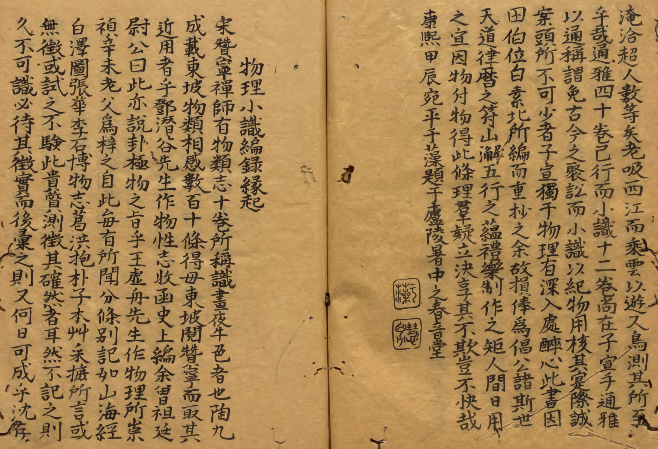 淹洽超人數等矣老吸西江而乘雲以遊又烏測其所至
乎哉通雅四十卷已行而小識十二卷尚在子宣手通雅
以通稱謂免古今之聚訟而小識以紀物用核其寔際誠
案頭所不可少者子宣獨于物理有深入處醉心此書因
田伯位白素北所編而重抄之余故損俸為倡公諸斯世
天道律曆之符山澥五行之蘊禮樂制作之矩人間日用
之宜因物付物得此條理羣疑立決享其不欺豈不快哉
康熙甲辰宛平于藻題于廬陵署中之春音堂
物理小識編錄緣起
宋贊寧禪師有物類志十卷所稱識畫夜牛邑者也陶九
成載東坡物類相感數百十條得毋東坡閱贊寧而取其
近用者乎鄧潛谷先生作物性志收函史上編余曾祖廷
尉公曰此亦說卦極物之旨乎王虛舟先生作物理所崇
禎辛未老父為梓之自此每有所聞分條別記如山海經
白澤圖張華李石博物志葛洪抱朴子本艸采摭所言或
無徵或試之不驗此貴質測徵其確然者耳然不記之則
久不可識必待其徵實而後彙之則又何日可成乎沈存